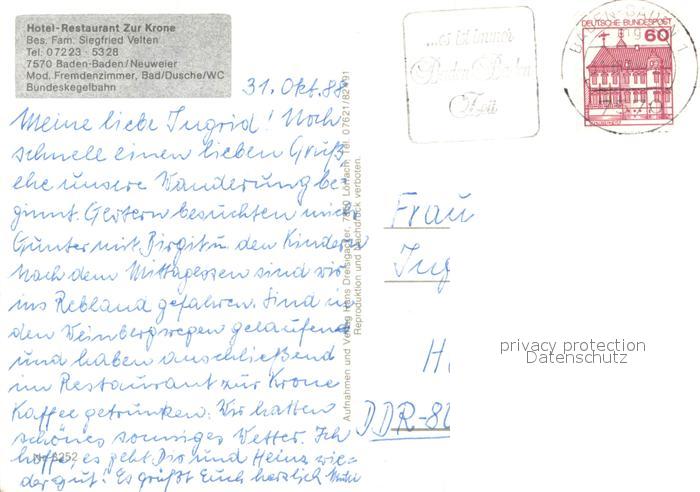 Hotel-Restaurant Zur Krone
Bes. Fam. Siegfried Velten
Tel. 07223 - 5328
7570 Baden-Baden/Neuweier
Mod. Fremdenzimmer, Bad/Dusche/WC
Bundeskegelbahn
31. Okt. 88
Meine liebe Ingrid! Noch
schnell einen lieben Gruß
ehe unsere Wanderung be-
ginnt. Gestern besuchten mich
Günter mit Birgit u. den Kindern
Nach dem Mittagessen sind wir
ins Rebland gefahren. Sind in
den Weinbergwegen gelaufen
und haben anschließend
im Restaurant zur Krone
Kaffee getrunken. Wir hatten
schönes sonniges Wetter. Ich
hoffe, es geht Dir und Heinz wie-
der gut! Es grüßt Euch herzlich Mutti
Nr. 8252
Aufnahmen und Verlag Hans Dreisigacker, 7850 Lörrach, Tel. 07621/82491
Reproduktion und Nachdruck verboten.
...es ist immer
Baden-Baden
Zeit
DEUTSCHE BUNDESPOST
60
BADEN-BADEN 1
Frau
Ing
H
DDR-8
privacy protection
Datenschutz